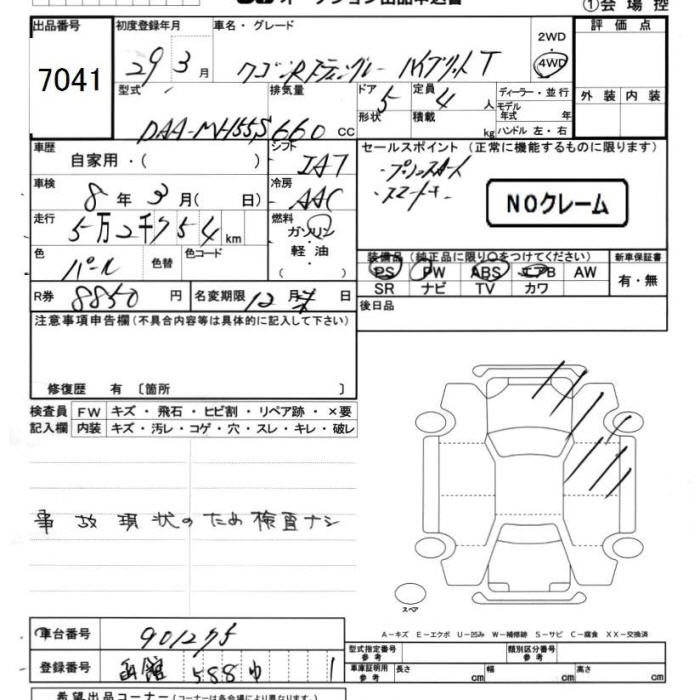 ①会場控
出品番号 初度登録年月 車名・グレード 2WD・4WD 評価点
7041 29年3月 ワゴンRスティングレー ハイブリッドT
型式 排気量 ドア 5 定員 4人 ディーラー・並行 外装 内装
形状 積載 kg モデル年式 年 ハンドル 左・右
DAA-MH55S 660 cc
車歴 自家用・( ) シフト IAT セールスポイント (正常に機能するものに限ります)
・プッシュスタート
・スマートキー
NOクレーム
車検 8年3月( 日) 冷房 AAC
走行 5万2千 54 km 燃料 ガソリン・軽油・( )
色 パール 色替 色コード
装備品(純正品に限り○をつけてください) 新車保証書
PS PW ABS エアB AW 有・無
SR ナビ TV カワ
R券 8850円 名変期限 12月末日 後日品
注意事項申告欄(不具合内容等は具体的に記入して下さい)
修復歴 有 〔箇所 〕
検査員 FW キズ・飛石・ヒビ割・リペア跡・×要
記入欄 内装 キズ・汚レ・コゲ・穴・スレ・キレ・破レ
事故現状のため検査ナシ
スペア
A-キズ E-エクボ U-凹み W-補修跡 S-サビ C-腐食 XX-交換済
車台番号 901275
型式指定番号 参考 類別区分番号 参考
登録番号 函館 588 ゆ 1
車庫証明用 参考 長さ cm 幅 cm 高さ cm
希望出品コーナー(コーナーは各会場により異なります。)